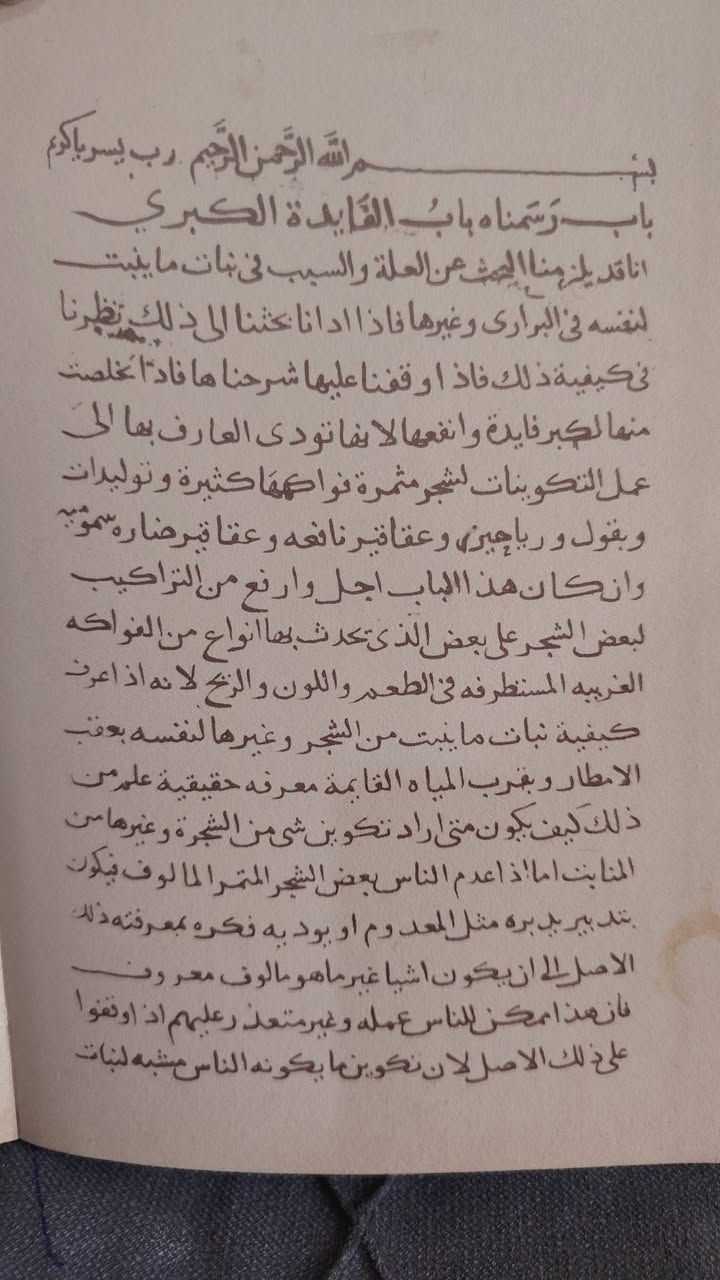 بسم الله الرحمن الرحيم رب يسر ياكريم
باب رَسَمناه بابُ الفَايدة الكبري
انا قد يلزمنا البحث عن العلة والسبب فى نبات ما ينبت
لنفسه فى البرارى وغيرها فاذا ادانا بحثنا الى ذلك نظرنا
فى كيفية ذلك فاذا وقفنا عليها شرحناها فاذا تخلصت
منها لكبر فايدة وانفعها لانها تودى العارف بها الى
عمل التكوينات لشجر مثمرة فواكهها كثيرة وتوليدات
وبقول ورياحين وعقاقير نافعه وعقاقير ضاره سموميه
وان كان هذا الباب اجل وارفع من التراكيب
لبعض الشجر على بعض الذى تحدث بها انواع من الفواكه
الغريبه المستظرفه فى الطعم واللون والريح لانه اذا عرف
كيفية نبات ما ينبت من الشجر وغيرها لنفسه بعقب
الامطار وبقرب المياه القايمة معرفه حقيقية علم من
ذلك كيف يكون متى اراد تكوين شى من الشجرة وغيرها من
المنابت اما اذا عدم الناس بعض الشجر المثمر المالوف فيكون
بتدبير يدبره مثل المعدوم او يوديه فكره بمعرفته ذلك
الاصل الى ان يكون اشيا غير ما هو مالوف معروف
فان هذا ممكن للناس عمله وغير متعذر عليهم اذا وقفوا
على ذلك الاصل لان تكوين ما يكونه الناس مشبه لنبات